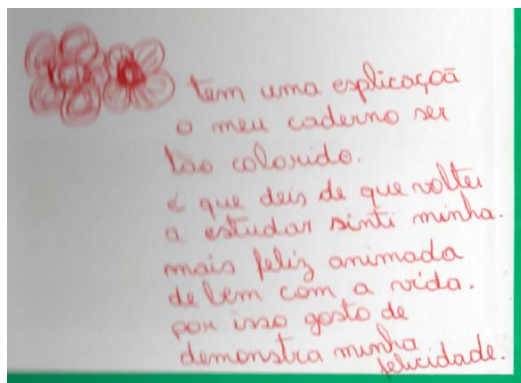 tem uma esplicaçoã
o meu caderno ser
tao colorido.
é que deis de que voltei
a estudar sinti minha.
mais feliz animada
de bem com a vida.
por isso gosto de
demonstra minha
felicidade.